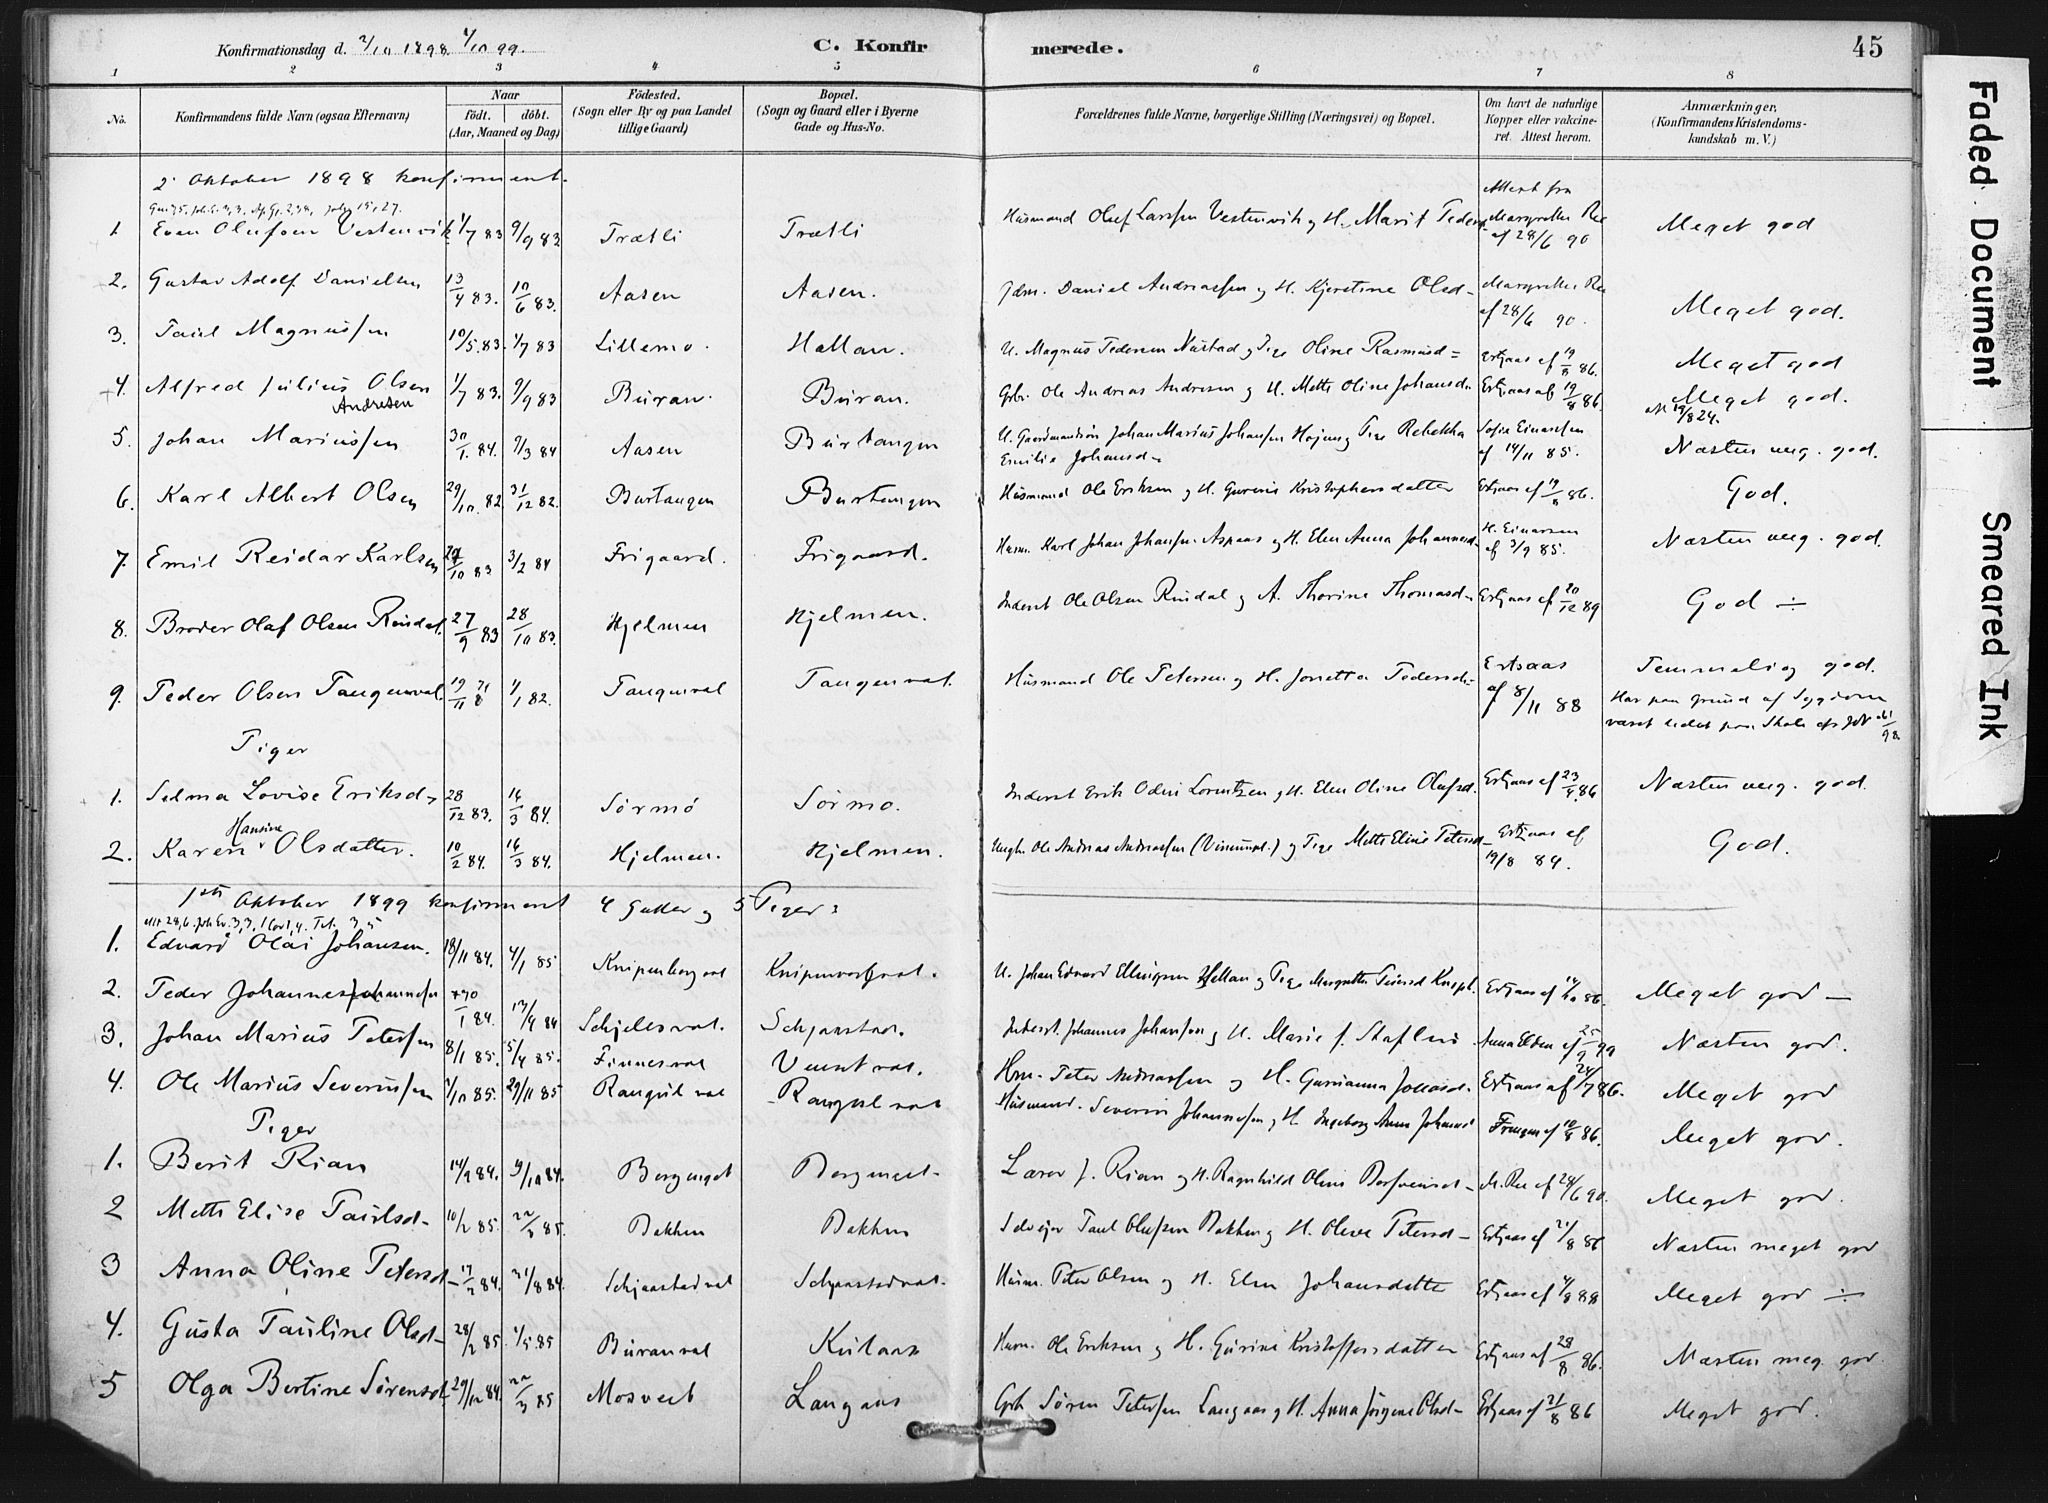 Konfirmationsdag d. 2/10 1898 1/10 99.
C. Konfirmerede.
45
1 2 3 4 5 6 7 8
No.
Konfirmandens fulde Navn (ogsaa Efternavn)
Naar
födt. döbt.
(Aar, Maaned og Dag)
Födested.
(Sogn eller By og paa Landet tillige Gaard)
Bopæl.
(Sogn og Gaard eller i Byerne Gade og Hus-No.
Forældrenes fulde Navne, borgerlige Stilling (Næringsvei) og Bopæl.
Om havt de naturlige Kopper eller vaccineret. Attest herom.
Anmærkninger,
(Konfirmandens Kristendomskundskab m. V.)
2. Oktober 1898 konfirmeret.
1 Even Olufsen Vestenvik 1/7 83 9/9 83 Trætli Trætli Husmand Oluf Larssen Vestenvik og H. Marit Pedersd. Attest fra Margrethe Ree af 28/6 90 Meget god
2. Gustav Adolf Danielsen 13/4 83. 10/6 83. Aasen Aasen. Daniel Andreassen og H. Kjerstine Olsd- Margrethe Ree af 28/6 90. Meget god.
3. Paul Magnussen 10/5 83. 1/7 83 Lillemo. Hallan. U. Magnus Pedersen Nustad og Pige Oline Rasmusd= Ertzaas af 19/8 86. Meget god
4. Alfred Julius Olsen Andresen 1/7 83. 9/9 83 Buran. Buran. Gbr. Ole Andreas Andresen og H. Mette Oline Johansd. Ertzaas af 19/8 86. Meget god. 19/8 24.
5. Johan Mariussen 30/1 84. 9/3 84 Aasen Burtangen U. Gaardmandsøn Johan Marius Johansen Højem og Pige Rebekka Emilie Johansd- Sofie Einarssen af 14/11 85. Næsten meg. god.
6. Karl Albert Olsen 29/10 82 31/12 82. Burtangen Burtangen Husmand Ole Eriksen og H. Gurine Kristophersdatter Ertzaas af 19/8 86. God.
7. Emil Reidar Karlsen 29/10 83 3/2 84 Frigaard. Frigaard. Husm. Karl Johan Johansen Aspaas og H. Elen Anna Johannesd- H. Einarsen af 3/9 85. Næsten meg. god.
8. Broder Olaf Olsen Rindal 27/9 83 28/10 83. Hjelmen Hjelmen. Inderst Ole Olsen Rindal og H. Thorine Thomasd- Ertzaas af 20/12 89 God ÷
9. Peder Olsen Tangenval 19/11 81 1/1 82. Tangenval Tangenval. Husmand Ole Petersen og H. Jonetta Pedersd- Ertzaas af 8/11 88 Temmelig god.
Har paa Grund af Sygdom været lidet paa Skole
Piger
1. Selma Lovise Eriksd- 28/12 83. 16/3 84. Sørmo Sørmo. Inderst Erik Odin Lorentzen og H. Elen Oline Olufsd. Ertzaas af 23/9 86 Næsten meg. god.
2. Karen Hansine Olsdatter. 10/2 84. 16/3 84. Hjelmen. Hjelmen. Ungk. Ole Andreas Andreassen og Pige Mette Eline Petersd- Ertzaas af 19/8 84. God.
1ste Oktober 1899 konfirmeret 4 Gutter og 5 Piger:
1. Edvard Olai Johansen. 18/11 84. 4/1 85 Knipenborgval Knipenborgval. U. Johan Edvard Ellingsen Hallan og Pige Margrethe Ertzaas af 86. Meget god —
2. Peder Johannes Johannessen 30/1 84. 13/4 84 Schjelesval. Schjaastad. Inderst. Johannes Johansson og H. Marie Anna Elden af 25/9 99 Næsten god.
3. Johan Marius Petersen 8/1 85. 5/4 85. Finnesval Husm. Peter Andreassen og H. Gurianna Jonasd. Ertzaas af 24/7 86. Meget god
4. Ole Marius Severinssen 1/10 85. 29/11 85 Ranguilval Ranguilval Husmand. Severin Johannessen og H. Ingeborg Anna Johansd Meget god.
Piger
1. Berit Rian 14/9 84. Bergenget Bergenget- Lærer J. Rian og H. Ragnhild Oline M. Ree af 28/6 90. Meget god.
2 Mette Elise Paulsd- 10/2 85. 22/3 85. Bakken Bakken Selvejer Paul Olufsen Bakken og H. Oleve Petersd- Ertzaas af 21/8 86 Næsten meget god
3 Anna Oline Petersd- 84. 31/8 84. Schjaastadval Schjaastadval. Husm. Peter Olsen og H. Elen Johansdatter Ertzaas af 88 Meget god ÷
4. Gusta Pauline Olsd- 28/2 85. 1/5 85 Buranval Kulaas Husm. Ole Eriksen og H. Gurine Kristoffersdatter Ertzaas af 28/8 86. Næsten meg. god
5 Olga Bertine Sørensd- 29/12 84. 22/3 85 Mosveet Langaas Gbr Sören Petersen Langaas og H. Anna Jörgine Olsd- Ertzaas af 21/8 86 Meget god.
Faded Document
Smeared Ink